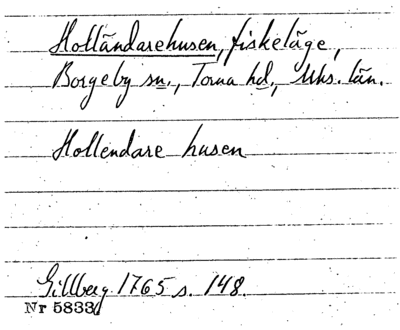 Holländarehusen, fiskeläge,
Borgeby sn., Torna hd., Mhs. län.
Hollendare husen
Gillberg 1765 s. 148.
Nr 5833